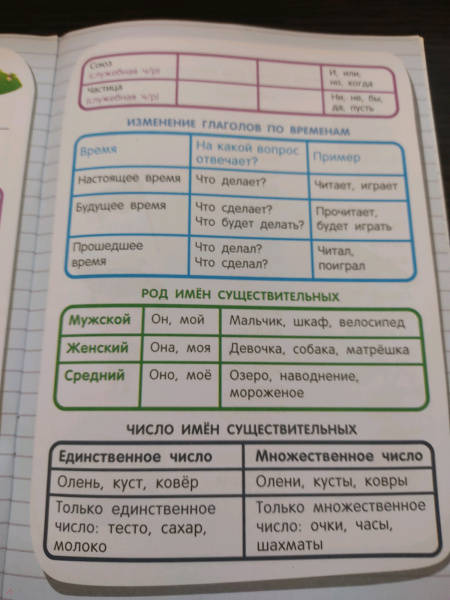 Союз
(служебная ч/р)
И, или,
но, когда
Частица
(служебная ч/р)
Ни, не, бы,
да, пусть
ИЗМЕНЕНИЕ ГЛАГОЛОВ ПО ВРЕМЕНАМ
Время
На какой вопрос
отвечает?
Пример
Настоящее время
Что делает?
Читает, играет
Будущее время
Что сделает?
Что будет делать?
Прочитает,
будет играть
Прошедшее
время
Что делал?
Что сделал?
Читал,
поиграл
РОД ИМЁН СУЩЕСТВИТЕЛЬНЫХ
Мужской
Он, мой
Мальчик, шкаф, велосипед
Женский
Она, моя
Девочка, собака, матрёшка
Средний
Оно, моё
Озеро, наводнение,
мороженое
ЧИСЛО ИМЁН СУЩЕСТВИТЕЛЬНЫХ
Единственное число
Множественное число
Олень, куст, ковёр
Олени, кусты, ковры
Только единственное
число: тесто, сахар,
молоко
Только множественное
число: очки, часы,
шахматы